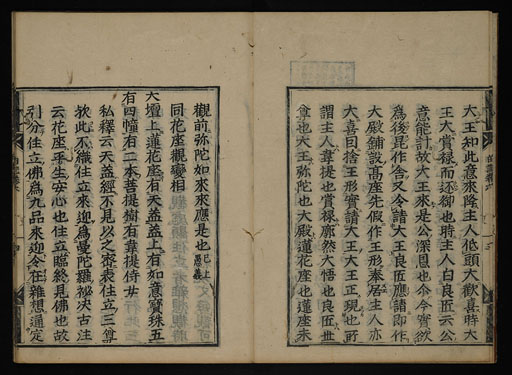 大王知此意來降主人低頭大歡喜時大
王大賞祿而還御也時主人白良匠云公
意能計故大王來是公深恩也今令實欲
爲後毘作舍又令請大王良匠應請即作
大殿鋪設高座先假作王形奉居主人亦
大喜因捨王形實請大王大王正現也所
謂主人韋提也賞祿廓然大悟也良匠世
尊也大王弥陀也大殿蓮座也蓮座未
觀前弥陀如來來應是也已上愚義
同花座觀變相
大壇上蓮花座有天蓋蓋上有如意寶珠五
有四幢有二本菩提樹有韋提侍女
私釋云天蓋經不見以之齊表住立三尊
欤此不織住立來迎爲曼陀羅祕決古注
云花座平生安心也住立臨終見佛也故
引分住立佛爲九品來迎今在雜想通定